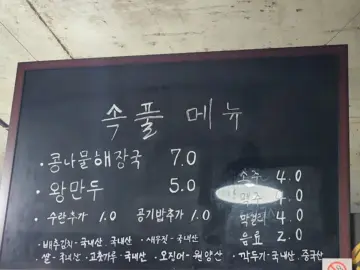 속풀 메뉴
· 콩나물해장국 7.0
· 왕만두 5.0
· 수란추가 1.0 공기밥추가 1.0
소주 4.0
맥주 4.0
막걸리 4.0
음료 2.0
· 배추김치 - 국내산 · 국내산 · 새우젓 - 국내산
· 쌀 - 국내산 · 고춧가루 - 국내산 · 오징어 - 원양산 · 깍두기 - 국내산 · 중국산